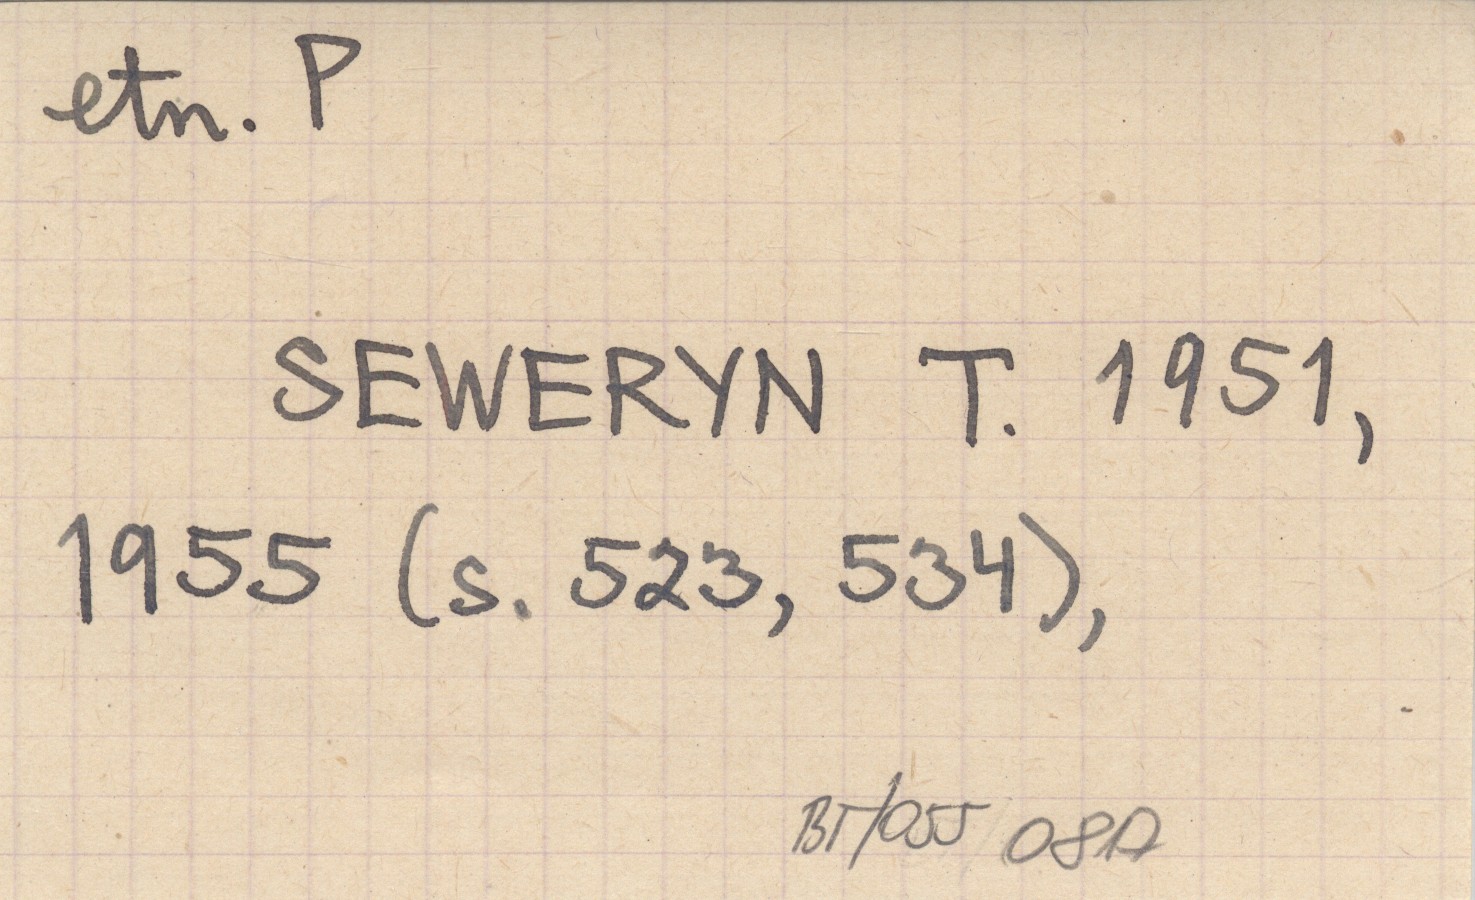 etn. P
SEWERYN T. 1951,
1955 (s. 523, 534),
BT/055/08A